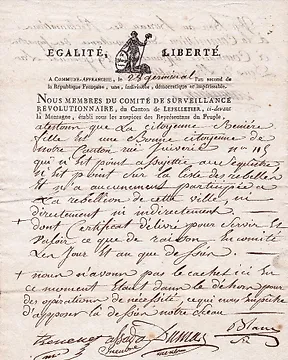 EGALITÉ, LIBERTÉ.
A COMMUNE-AFFRANCHIE, le 24 germinal, l'an second de
la République Française, une, indivisible, démocratique et impérissable.
NOUS MEMBRES DU COMITÉ DE SURVEILLANCE
RÉVOLUTIONNAIRE, du Canton de LEPELLETIER, ci-devant
la Montagne, établi sous les auspices des Représentans du Peuple,
attestons que La citoyenne
fille est une Bonne citoyenne de
notre Canton rue juiverie n° 115
qui n'est point assujettie au sequestre
n'est point sur La liste des rebelles
et n'a aucunement participée a
La rebellion de cette ville, ni
directement ni indirectement
dont Certificat délivré pour servir Et
valoir ce que de raison En comité
Les jour Et an que dessus
nous n'avons pas le cachet ici En
ce moment Etant dans le dehors pour
des opérations de nécessité, ce qui nous empêche
d'apposer la de notre sceau
Dumas Blanc